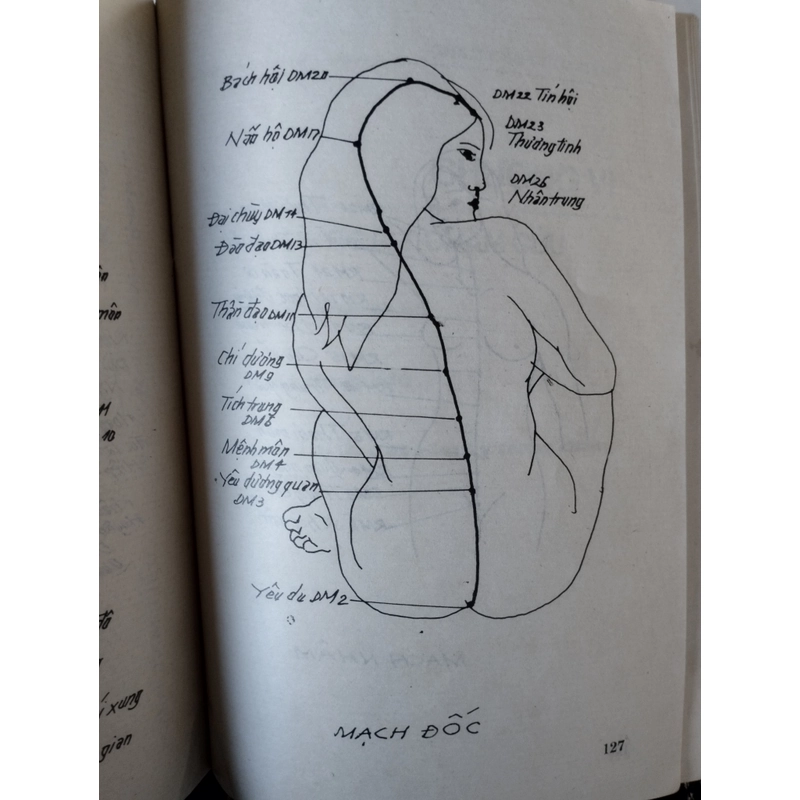 Bách hội DM20
DM22 Tín hội
DM23
Thượng tinh
Não hộ DM17
DM26
Nhân trung
Đại chùy DM14
Đào đạo DM13
Thần đạo DM11
Chí dương
DM9
Tích trung
DM6
Mệnh môn
DM4
Yêu dương quan
DM3
Yêu du DM2
MẠCH ĐỐC
127
môn
10
đô
xung
gian